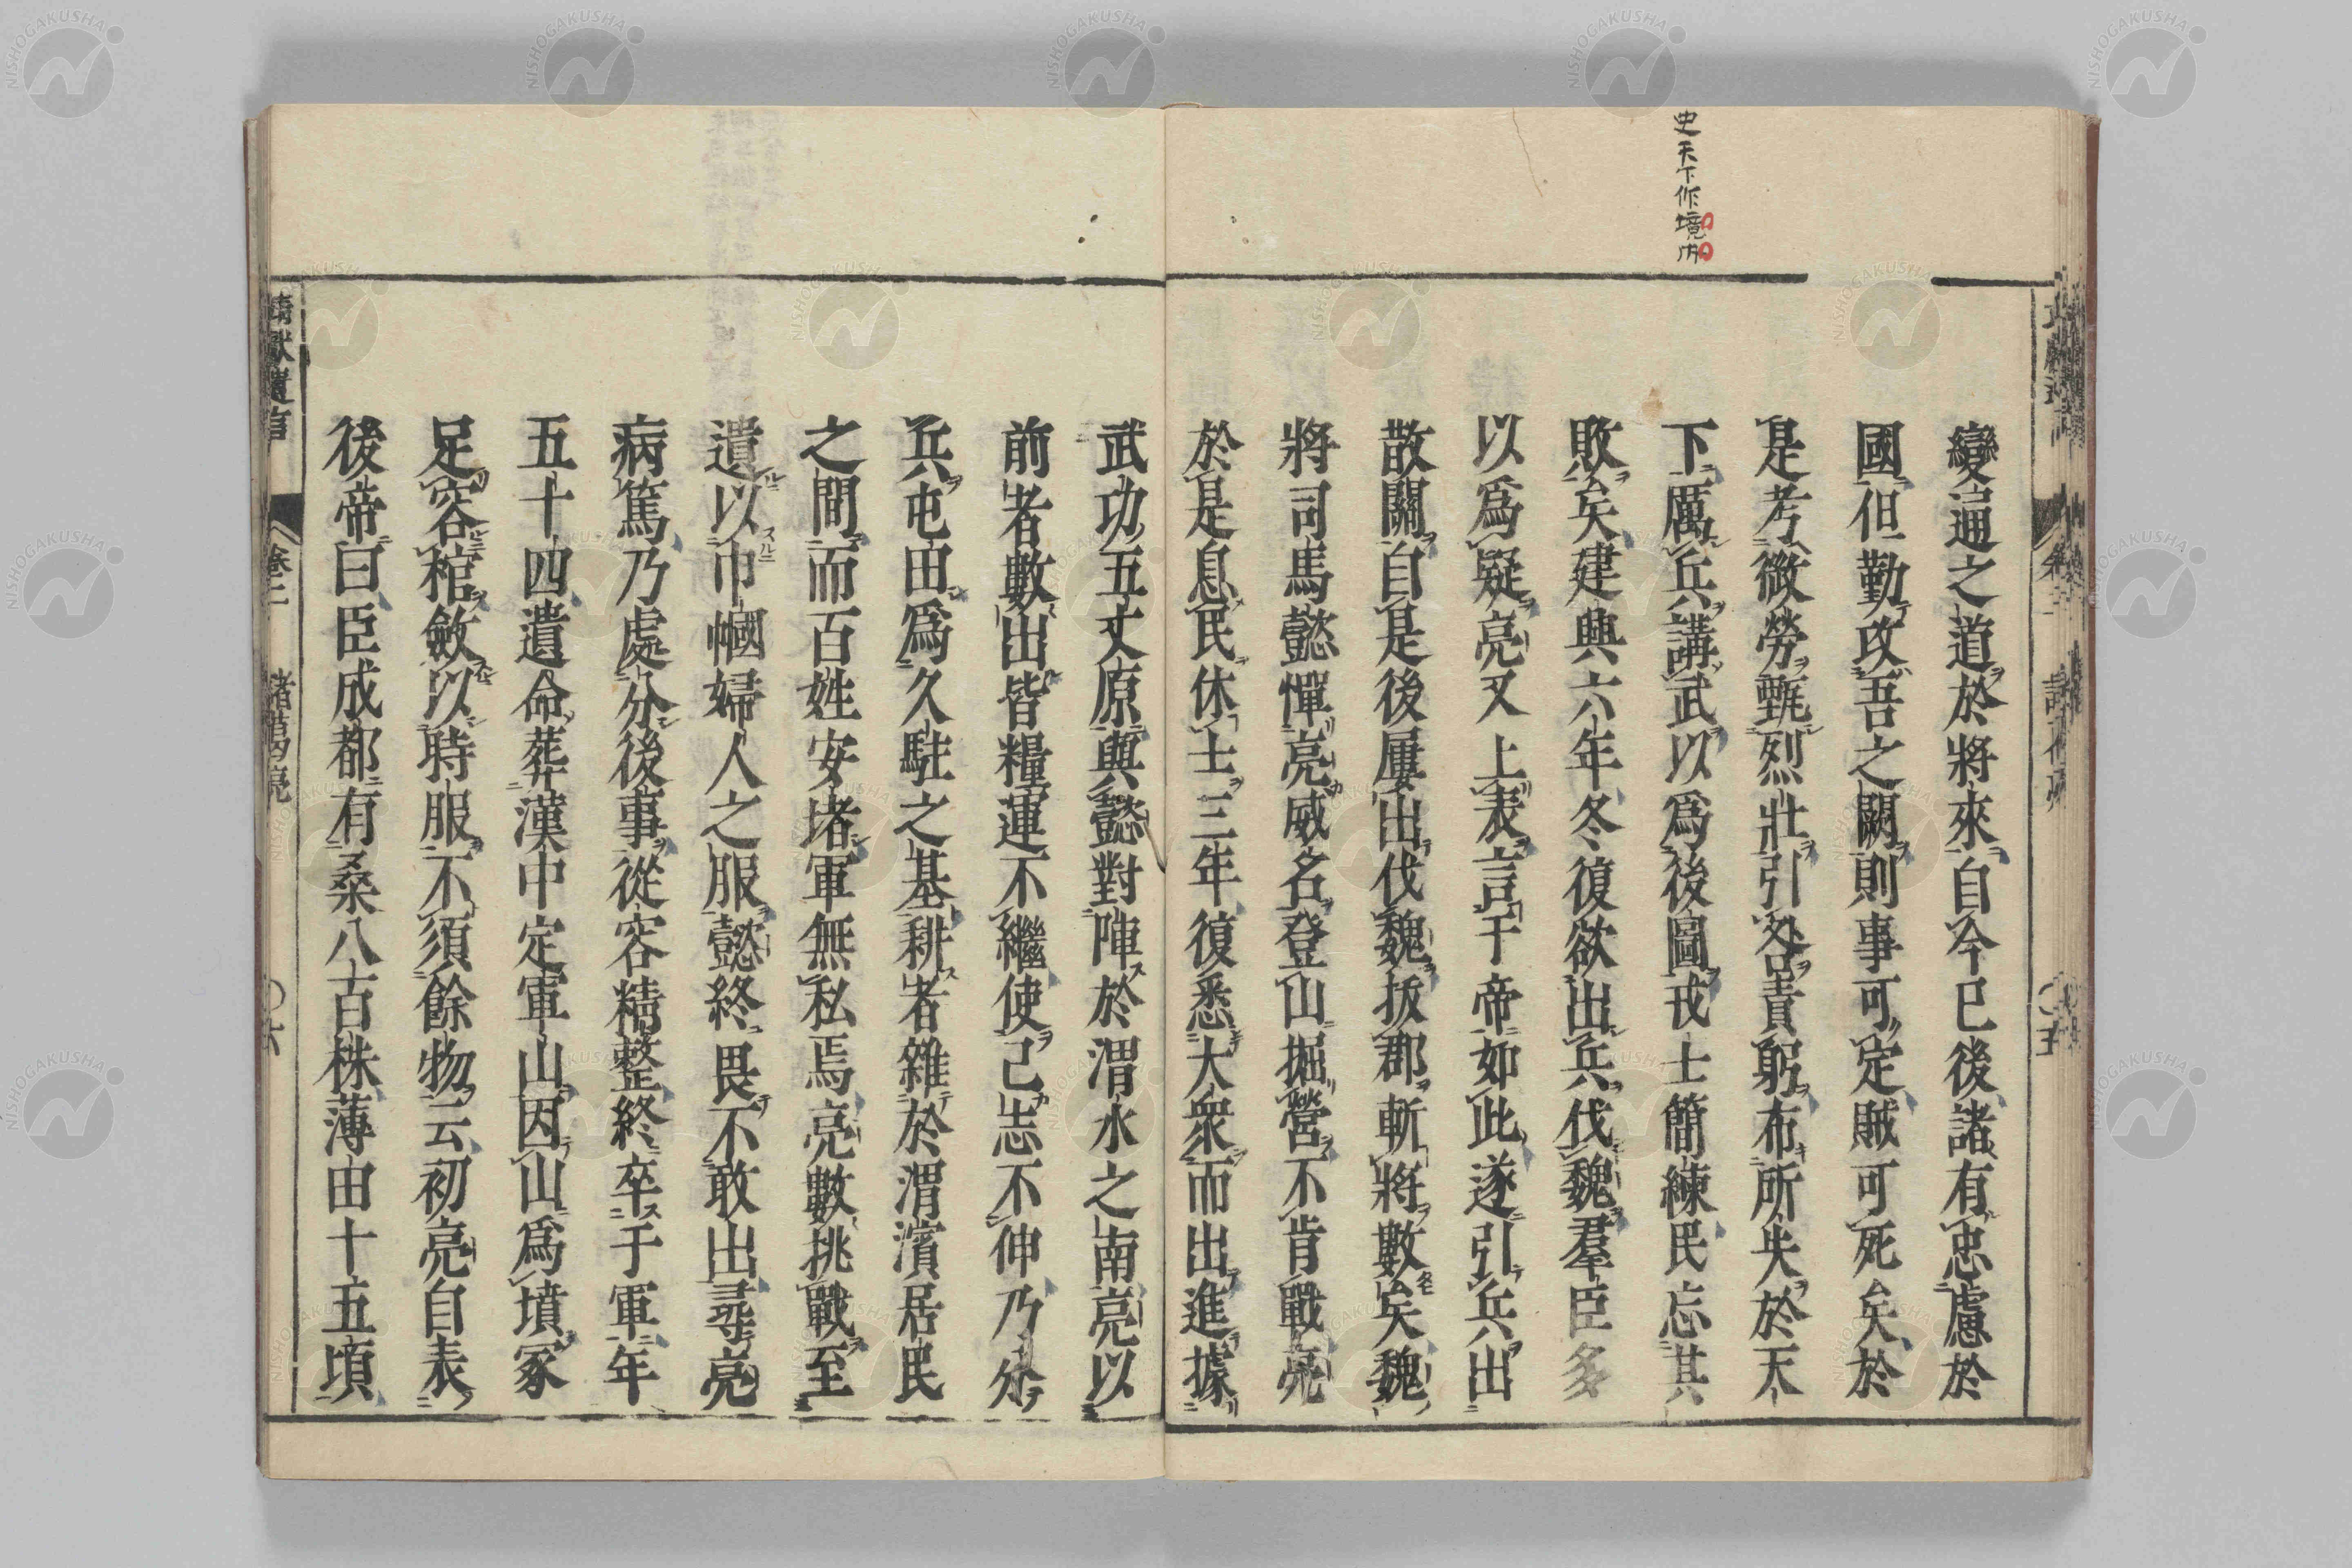 史天下作境内
變通之道於將來自今已後諸有忠慮於
國但勤攻吾之闕則事可定賊可死矣於
是考微勞甄烈壯引咎責躬布所失於天
下厲兵講武以爲後圖戎士簡練民忘其
敗矣建興六年冬復欲出兵伐魏羣臣多
以爲疑亮又上表言于帝如此遂引兵出
散關自是後屢出伐魏拔郡斬將數矣魏
將司馬懿憚亮威名登山掘營不肯戰亮
於是息民休士三年復悉大衆而出進據
武功五丈原與懿對陣於渭水之南亮以
前者數出皆糧運不繼使己志不伸乃分
兵屯田爲久駐之基耕者雜於渭濱居民
之間而百姓安堵軍無私焉亮數挑戰至
遺以巾幗婦人之服懿終畏不敢出尋亮
病篤乃處分後事從容精整終卒于軍年
五十四遺命葬漢中定軍山因山爲墳冢
足容棺斂以時服不須餘物云初亮自表
後帝曰臣成都有桑八百株薄田十五頃
靖獻遺言 卷二 諸葛亮 〇六